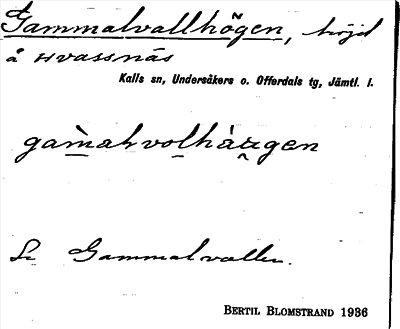 Gammalvallhögen, höjd
å Hvassnäs
Kalls sn, Undersåkers o. Offerdals tg, Jämtl. l.
gam̀alvolhàu̯gen
Se Gammalvallen.
BERTIL BLOMSTRAND 1936